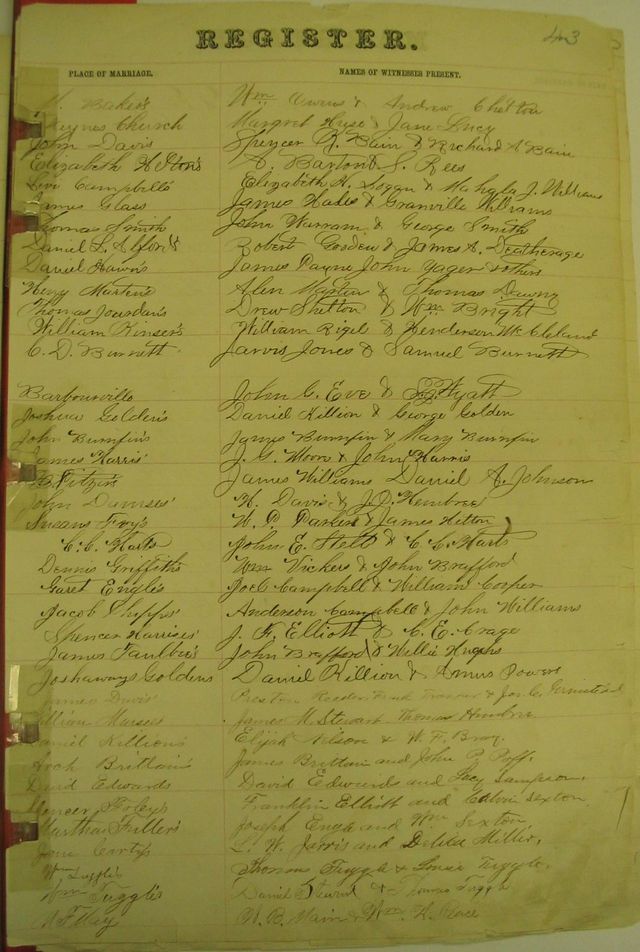 REGISTER.
403
PLACE OF MARRIAGE. NAMES OF WITNESSES PRESENT.
Baker's Wm Owens & Andrew
Church Margret & Jane Lucy
John Davis Spencer B. Bain & Richard A Bain
Elizabeth A. Barton S. Rees
Levi Campbells Elizabeth A. Logan & Mahala J. Williams
James Glass James Hale & Granville Williams
Thomas Smith John Warram & George Smith
Daniel L. Alford's Robert Gordon & James A. Deatherage
Daniel Hawn's James Payne John Yager & others
Henry Marten's Alen Martin & Thomas
Thomas Jourdan's Drew Shelton & Wm Bright
William Kinser's William Rigel & Henderson McCleland
C. D. Burnett Jarvis Jones & Samuel Burnett
Barbourville John G. Eve & Wyatt
Joshua Golden's Daniel Killion & George Golden
John Bumfin's James Bumfin & Mary Bumfin
James Harris' J. G. Moore & John Harris
James Williams Daniel A. Johnson
John H. Davis & J. D.
Susans Fry's W. P. Parker & James Helton
C. C. Harts John E. Stell & C. C. Harts
Dennis Griffiths Wm Vickers & John Brafford
Garet Engles Joel Campbell & William Corper
Jacob Phipps' Anderson Campbell & John Williams
Spencer Harrises' J. H. Elliott & C. E. Crage
James Faulbee's John Brafford & Willie Hughs
Joshaways Goldens Daniel Killion & Amus Powers
James Davis' Preston Frank &
James M. Stewart Thomas
Daniel Killion's Elijah Nelson & W. F. Bray.
Arch Brittain's James Brittain and John P. Poff.
David Edwards David Edwards and Lucy Sampson.
Spencer Foley's Franklin Elliott and Calvin Sexton
Martha Fuller's Joseph Engle and Wm Sexton
Jane Curtis L. W. Jarvis and Delila Miller.
Wm Tuggle's Thomas Tuggle & Louisa Tuggle.
Wm Tuggle's Daniel Stewart & Thomas Tuggle
W. B. Main & Wm. H.